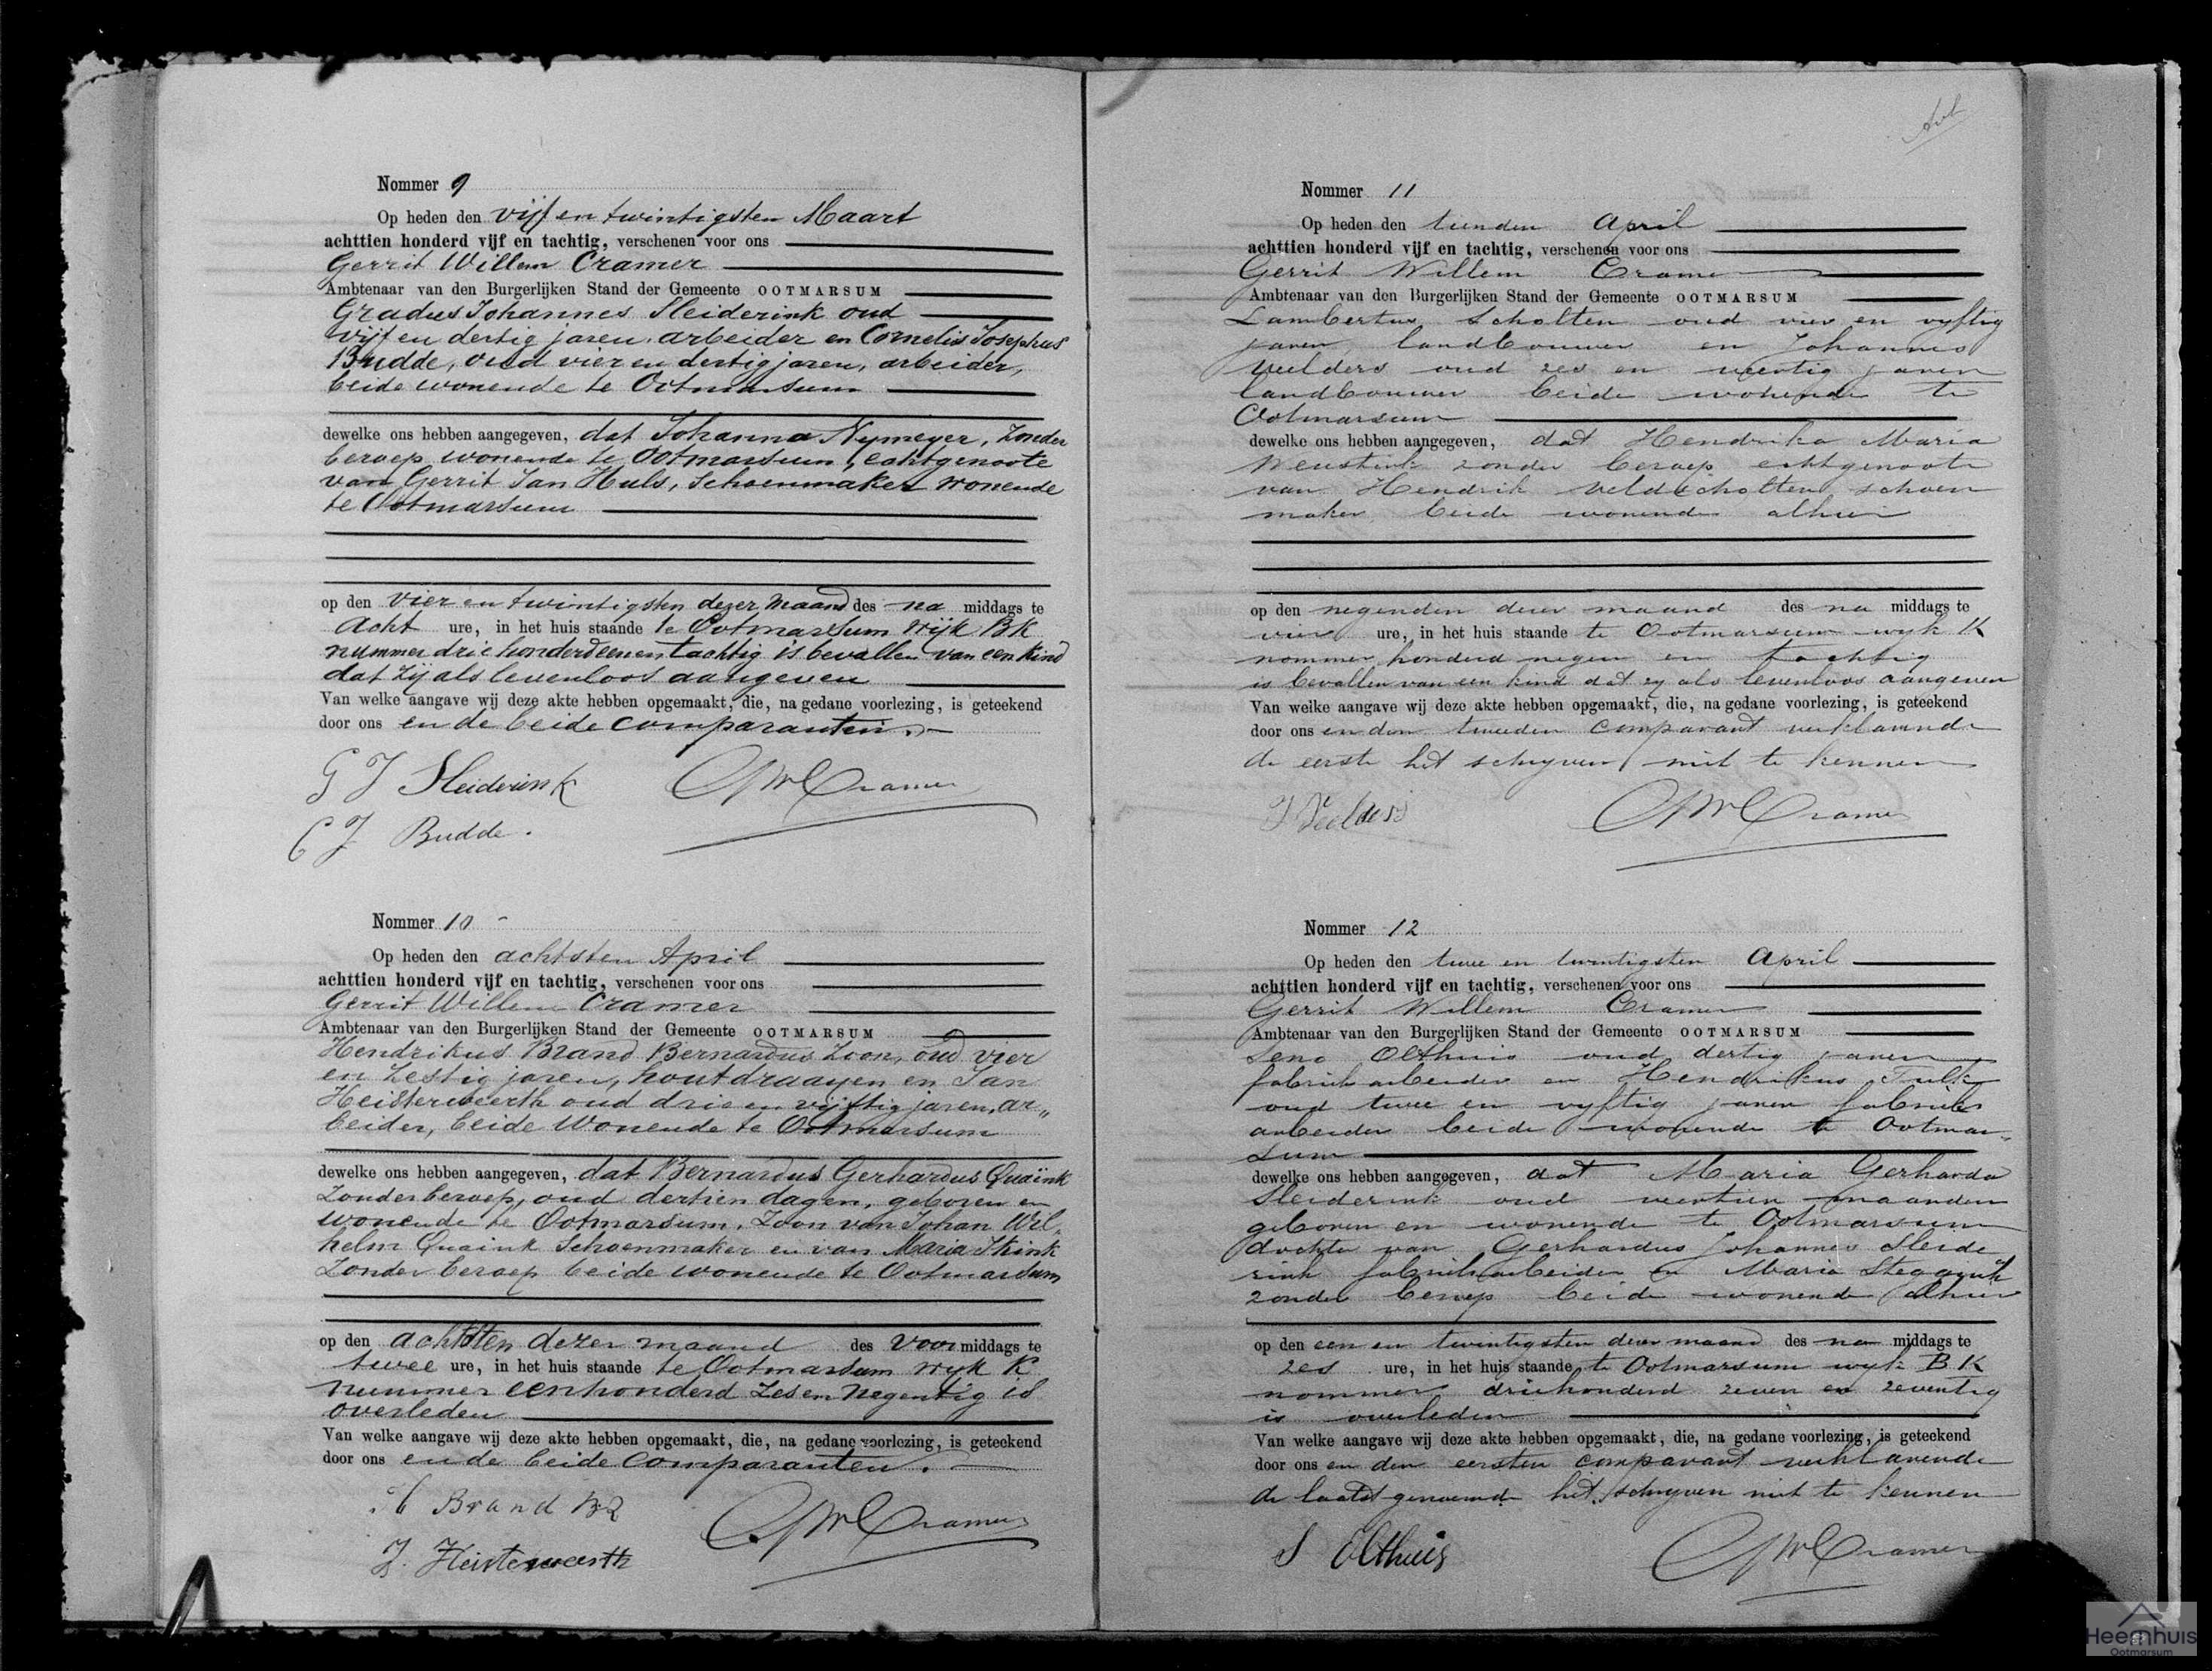 Nommer 9
Op heden den vijf en twintigsten Maart
achttien honderd vijf en tachtig, verschenen voor ons
Gerrit Willem Cramer
Ambtenaar van den Burgerlijken Stand der Gemeente OOTMARSUM
Gradus Johannes Sleiderink oud
vijf en dertig jaren, arbeider en Cornelis Josephus
Budde, oud vier en dertig jaren, arbeider,
beide wonende te Ootmarsum
dewelke ons hebben aangegeven, dat Johanna Nymeyer, Zonder
beroep wonende te Ootmarsum, echtgenoote
van Gerrit Jan Huls, Schoenmaker wonende
te Ootmarsum
op den vier en twintigsten dezer maand des na middags te
acht ure, in het huis staande te Ootmarsum wijk BK
nummer driehonderdeenentachtig is bevallen van een kind
dat zij als levenloos aangeven
Van welke aangave wij deze akte hebben opgemaakt, die, na gedane voorlezing, is geteekend
door ons en de beide comparanten.
G J Sleiderink GW Cramer
C J Budde.
Nommer 10
Op heden den achtsten April
achttien honderd vijf en tachtig, verschenen voor ons
Gerrit Willem Cramer
Ambtenaar van den Burgerlijken Stand der Gemeente OOTMARSUM
Hendrikus Brand Bernardus Zoon, oud vier
en Zestig jaren, houtdraayen en Jan
Heisterweerth oud drie en vijftig jaren, ar„
beider, beide Wonende te Ootmarsum
dewelke ons hebben aangegeven, dat Bernardus Gerhardus Quaïnk
Zonder beroep, oud dertien dagen, geboren en
wonende te Ootmarsum, Zoon van Johan Wil„
helm Quaink Schoenmaker en van Maria
Zonder beroep beide wonende te Ootmarsum
op den achtsten dezer maand des voor middags te
twee ure, in het huis staande te Ootmarsum wyk K
nummer eenhonderd Zesen Negentig is
overleden
Van welke aangave wij deze akte hebben opgemaakt, die, na gedane voorlezing, is geteekend
door ons en de beide Comparanten.
H Brand GW Cramer
J. Heisterweerth
Nommer 11
Op heden den tienden April
achttien honderd vijf en tachtig, verschenen voor ons
Gerrit Willem Cramer
Ambtenaar van den Burgerlijken Stand der Gemeente OOTMARSUM
Lambertus Scholten oud vier en vyftig
jaren, landbouwer en Johannes
Veelders oud zes en veertig jaren
landbouwer beide wonende te
Ootmarsum
dewelke ons hebben aangegeven, dat Hendrika Maria
Neustink zonder beroep echtgenoote
van Hendrik Veldscholten schoen
maker beide wonende alhier
op den negenden dezer maand des na middags te
vier ure, in het huis staande te Ootmarsum wyk K
nommer honderd negen en tachtig
is bevallen van een kind dat zy als levenloos aangeven
Van welke aangave wij deze akte hebben opgemaakt, die, na gedane voorlezing, is geteekend
door ons en den tweeden comparant verklarende
de eerste het schryven niet te kennen
J Veelders GW Cramer
Nommer 12
Op heden den twee en twintigsten April
achttien honderd vijf en tachtig, verschenen voor ons
Gerrit Willem Cramer
Ambtenaar van den Burgerlijken Stand der Gemeente OOTMARSUM
Seno Olthuis oud dertig jaren
fabriek arbeider en Hendrikus
oud twee en vyftig jaren fabriek
arbeider beide wonende te Ootmar„
sum
dewelke ons hebben aangegeven, dat Maria Gerharda
Sleiderink oud veertien maanden
geboren en wonende te Ootmarsum
dochter van Gerhardus Johannes Sleide
rink fabriekarbeider en Maria Steggink
zonder beroep beide wonende alhier
op den een en twintigsten dezer maand des na middags te
zes ure, in het huis staande te Ootmarsum wyk BK
nommer driehonderd zeven en zeventig
is overleden
Van welke aangave wij deze akte hebben opgemaakt, die, na gedane voorlezing, is geteekend
door ons en den eersten comparant verklarende
de laatst genoemde het schryven niet te kennen
S Olthuis GW Cramer
Heemhuis
Ootmarsum